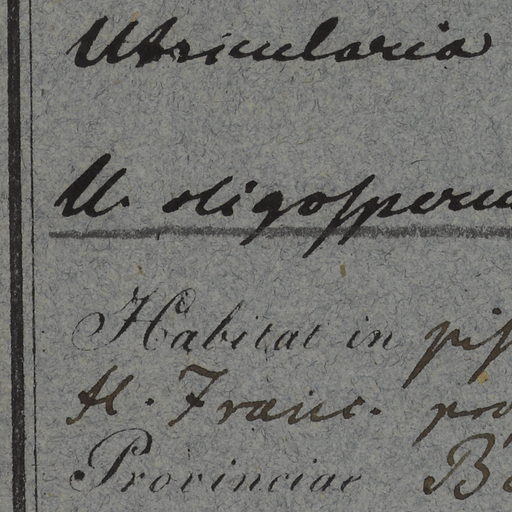 Utricularia
U. oligosperm
Habitat in pis
H. Franc. pro
Provinciae B